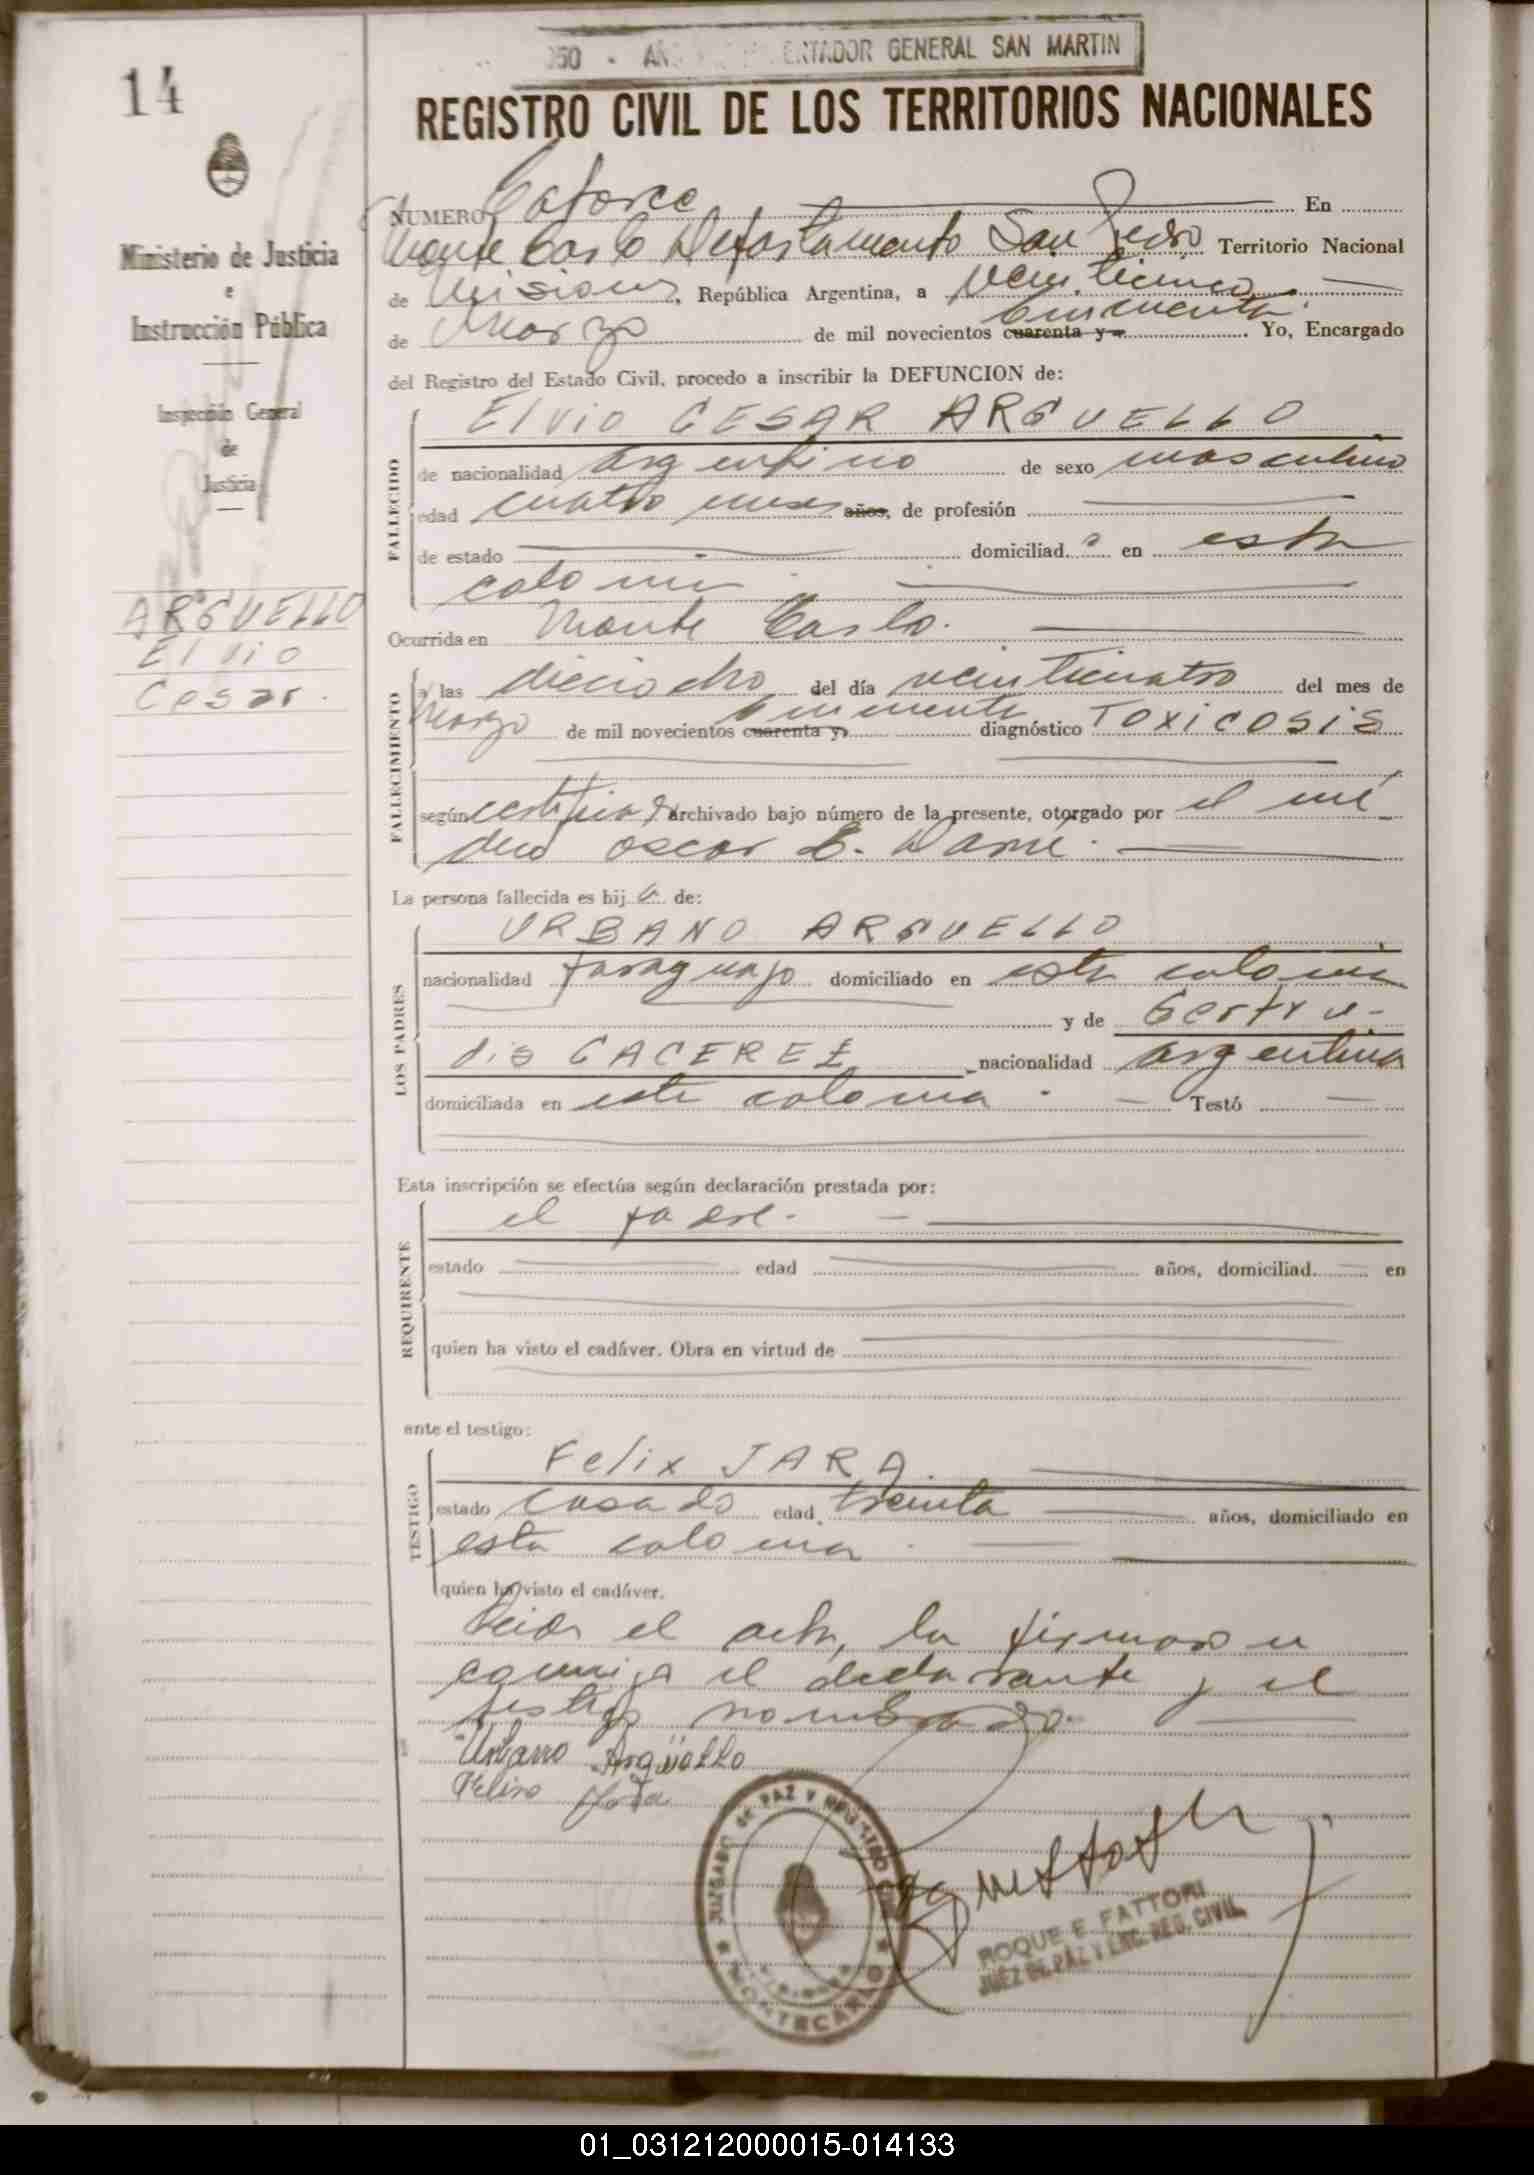 14
950 - AÑO DEL LIBERTADOR GENERAL SAN MARTIN
REGISTRO CIVIL DE LOS TERRITORIOS NACIONALES
Ministerio de Justicia
e
Instrucción Pública
Inspección General
de
Justicia
ARGUELLO
Elvio
Cesar.
NUMERO Catorce En
Monte Carlo Departamento San Pedro Territorio Nacional
de Misiones, República Argentina, a veinticinco
de Marzo de mil novecientos cuarenta y cincuenta. Yo, Encargado
del Registro del Estado Civil, procedo a inscribir la DEFUNCION de:
FALLECIDO
Elvio CESAR ARGUELLO
de nacionalidad argentino de sexo masculino
edad cuatro meses años, de profesión
de estado domiciliad o en esta
colonia
Ocurrida en Monte Carlo.
FALLECIMIENTO
a las dieciocho del día veinticuatro del mes de
Marzo de mil novecientos cuarenta y cincuenta diagnóstico TOXICOSIS
según certificado archivado bajo número de la presente, otorgado por el mé
dico Oscar E. Darré.
La persona fallecida es hij o de:
LOS PADRES
URBANO ARGUELLO
nacionalidad paraguayo domiciliado en esta colonia
y de Gertru-
dis CACERES nacionalidad argentina
domiciliada en esta colonia. Testó
Esta inscripción se efectúa según declaración prestada por:
REQUIRENTE
el padre.
estado edad años, domiciliad en
quien ha visto el cadáver. Obra en virtud de
ante el testigo:
TESTIGO
Felix JARA.
estado casado edad treinta años, domiciliado en
esta colonia.
quien ha visto el cadáver.
Leida el acta, la firmaron
conmigo el declarante y el
testigo nombrado.
Urbano Argüello
Jara
JUZGADO DE PAZ Y REGISTRO CIVIL
MISIONES
MONTECARLO
ROQUE E. FATTORI
JUEZ DE PAZ Y ENC. REG. CIVIL
01_031212000015-014133